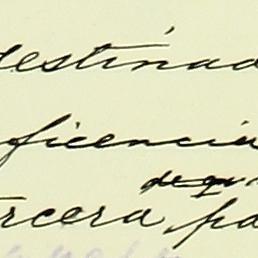 destinad
eficencia
de qu
ercera, pa